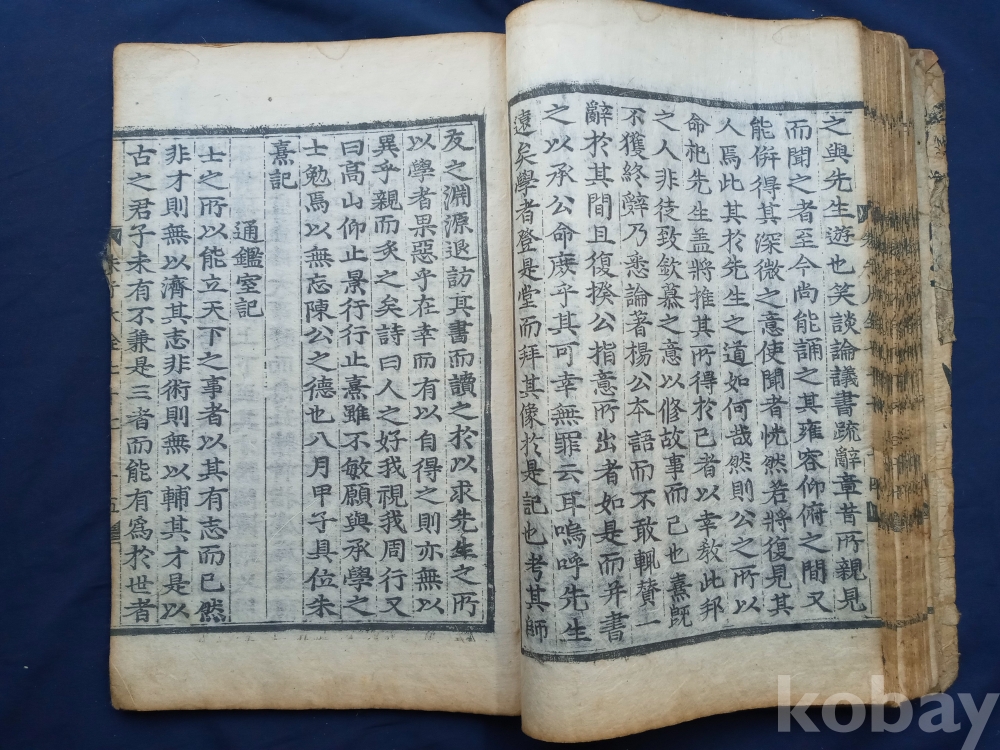 之與先生遊也笑談論議書疏辭章昔所親見
而聞之者至今尚能誦之其雍容仰俯之間又
能倂得其深微之意使聞者恍然若將復見其
人焉此其於先生之道如何哉然則公之所以
命祀先生盖將推其所得於己者以幸敎此邦
之人非徒致欽慕之意以修故事而已也熹旣
不獲終辭乃悉論著楊公本語而不敢輒贅一
辭於其間且復揆公指意所出者如是而幷書
之以承公命庶乎其可幸無罪云耳嗚呼先生
遠矣學者登是堂而拜其像於是記也考其師
友之淵源退訪其書而讀之於以求先生之所
以學者果惡乎在幸而有以自得之則亦無以
異乎親而炙之矣詩曰人之好我視我周行又
曰高山仰止景行行止熹雖不敏願與承學之
士勉焉以無忘陳公之德也八月甲子具位朱
熹記
通鑑室記
士之所以能立天下之事者以其有志而已然
非才則無以濟其志非術則無以輔其才是以
古之君子未有不兼是三者而能有爲於世者
kobay